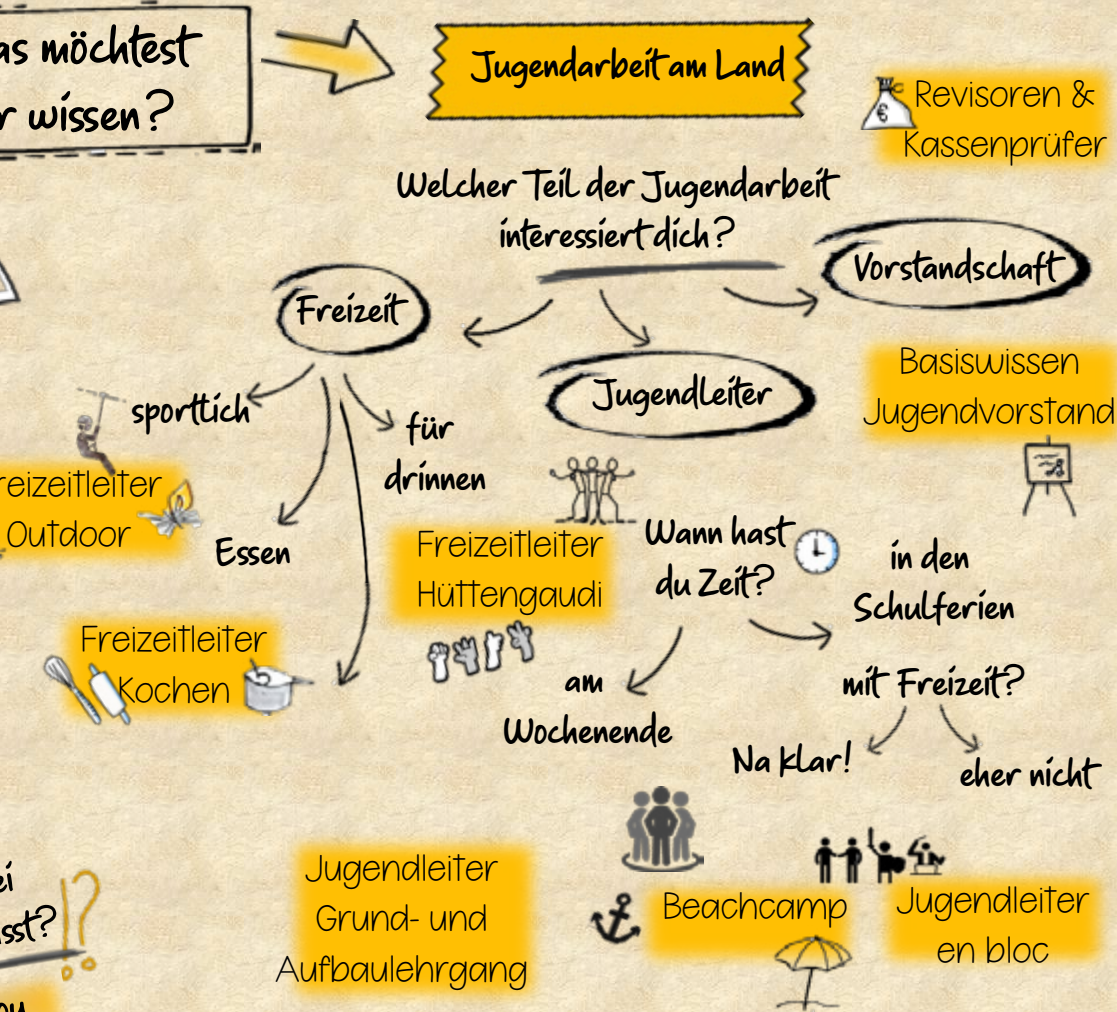 as möchtest
r wissen?
Jugendarbeit am Land
Revisoren &
Kassenprüfer
Welcher Teil der Jugendarbeit
interessiert dich?
Vorstandschaft
Freizeit
Jugendleiter
Basiswissen
Jugendvorstand
sportlich
für
drinnen
reizeitleiter
Outdoor
Essen
Freizeitleiter
Hüttengaudi
Wann hast
du Zeit?
in den
Schulferien
Freizeitleiter
Kochen
am
Wochenende
mit Freizeit?
Na klar!
eher nicht
Jugendleiter
Grund- und
Aufbaulehrgang
Beachcamp
Jugendleiter
en bloc
ei
sst?
!?